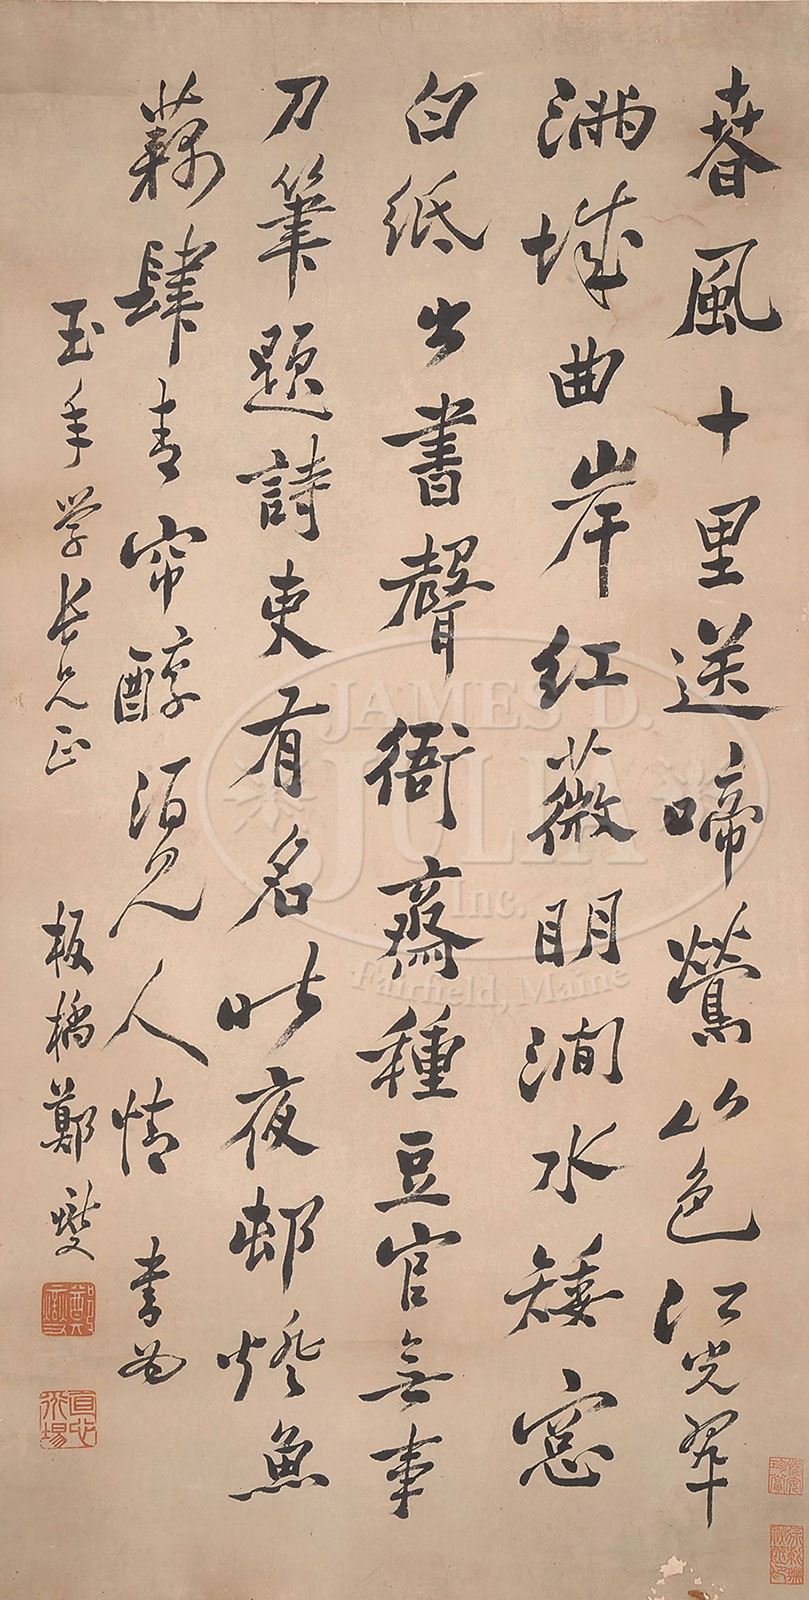 春風十里送啼鶯山色江光翠
滿城曲岸紅薇明澗水矮窓
白紙出書聲衙齋種豆官無事
刀筆題詩吏有名昨夜邨燈魚
藕肆青帘醇酒見人情 書為
玉年學長兄正 板橋鄭燮
鄭燮
JAMES D.
JULIA
Inc.
Fairfield, Maine